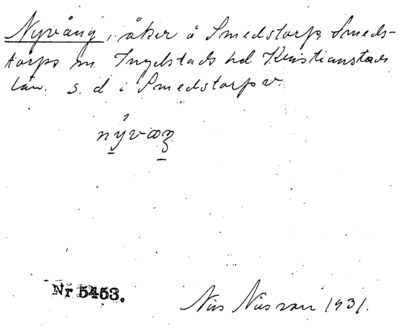 Nyvång, åker å Smedstorp, Smeds-
torps sn. Ingelstads hd Kristianstads
län. s. d i Smedstorp v.
nývaŋ
Nr 5453.
Nils Nilsson 1931.